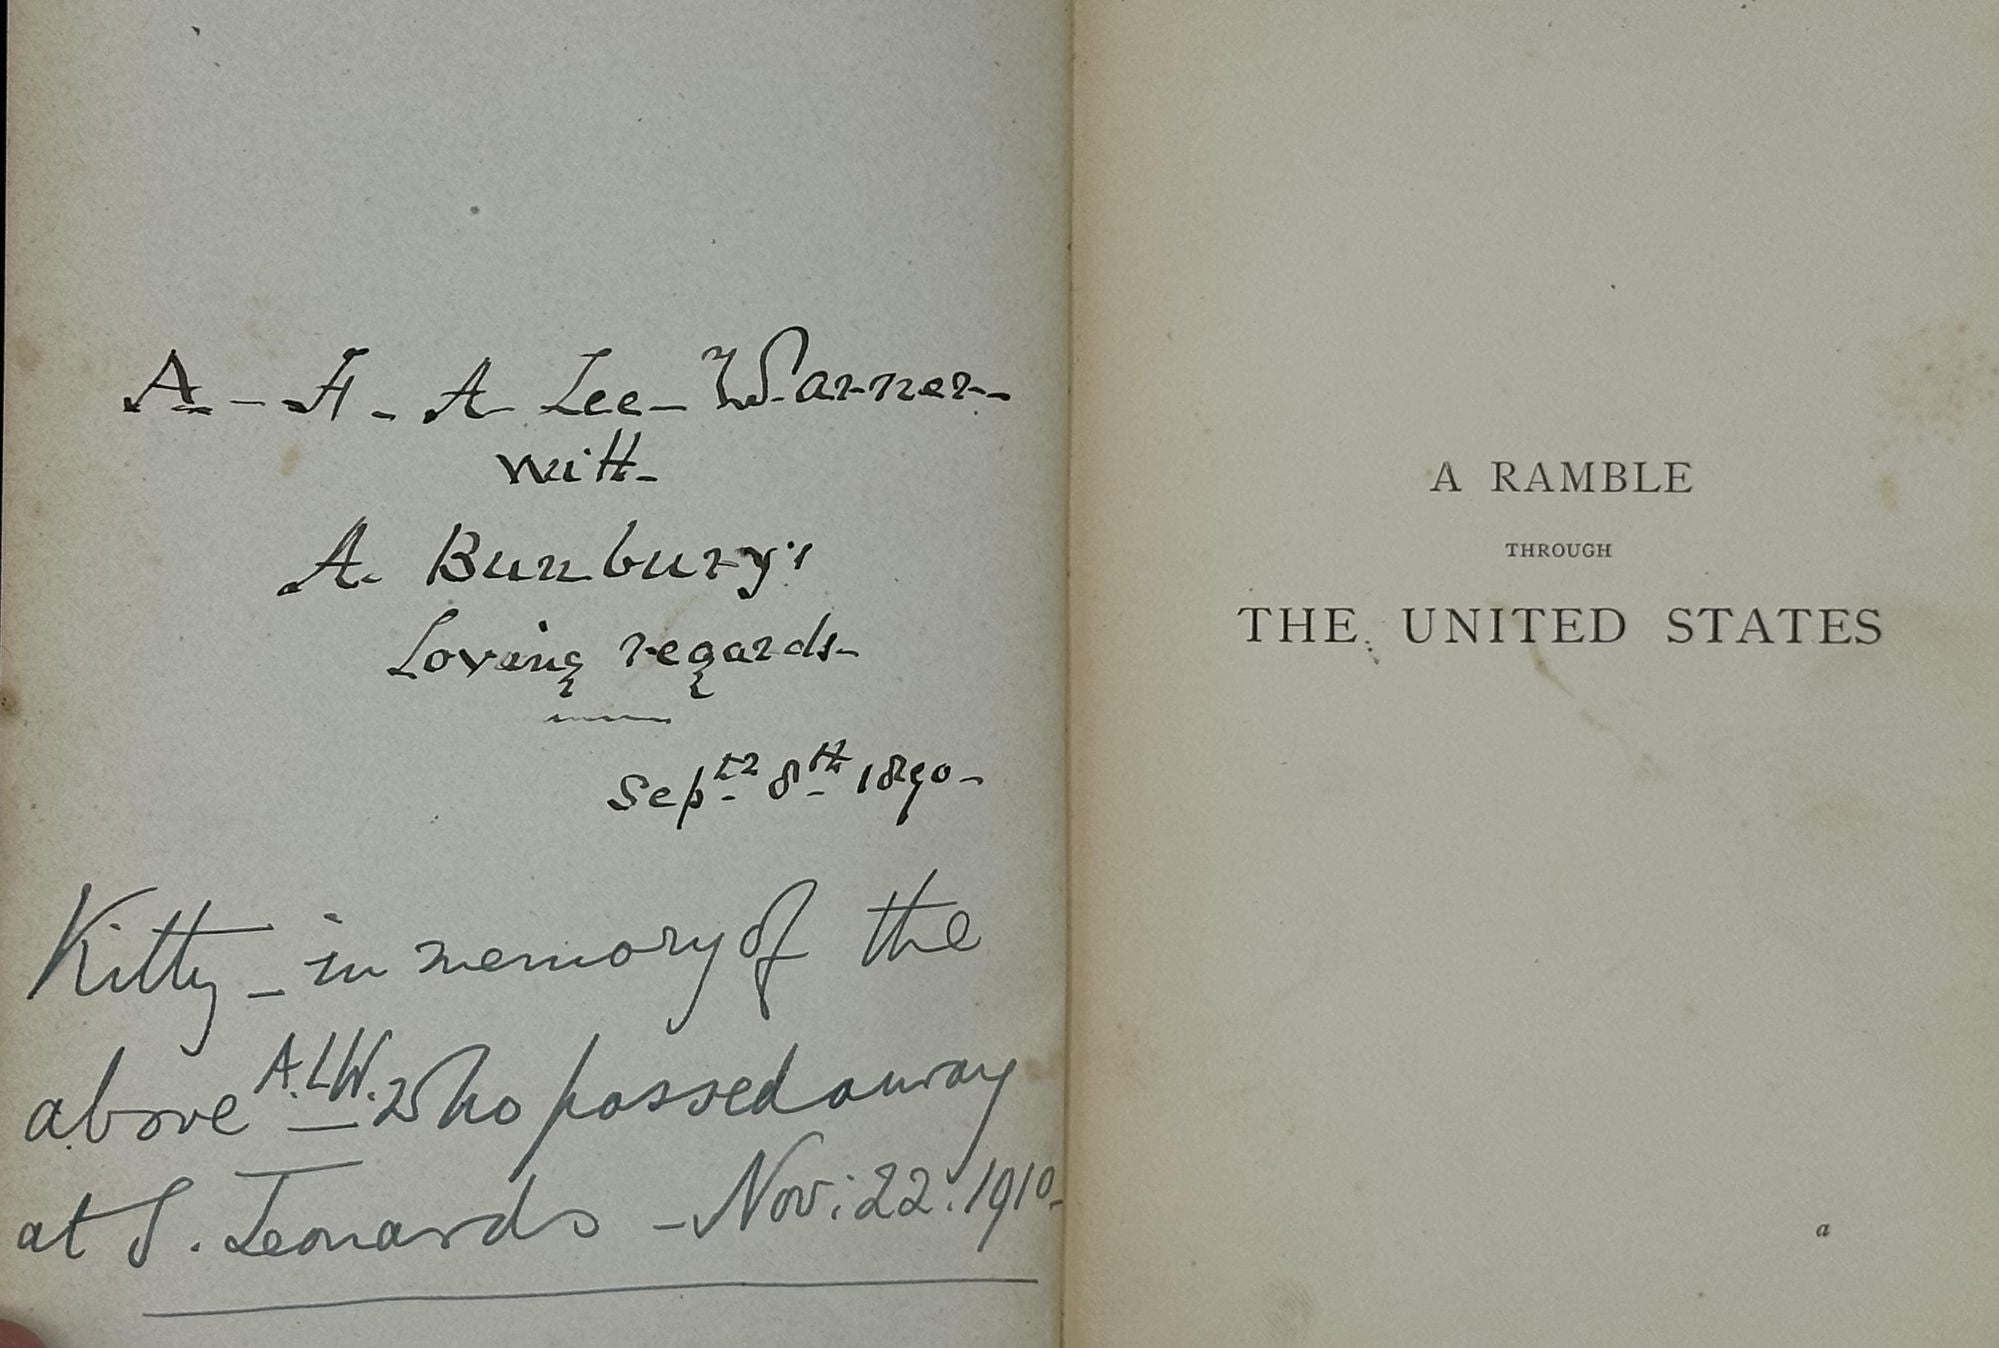 A - H - A Lee - Warner -
with -
A. Bunbury's
Loving regards -
Septr 8th 1890 -
Kitty - in memory of the
above A.L.W. who passed away
at S. Leonards - Nov: 22. 1910 -
A RAMBLE
THROUGH
THE UNITED STATES
a